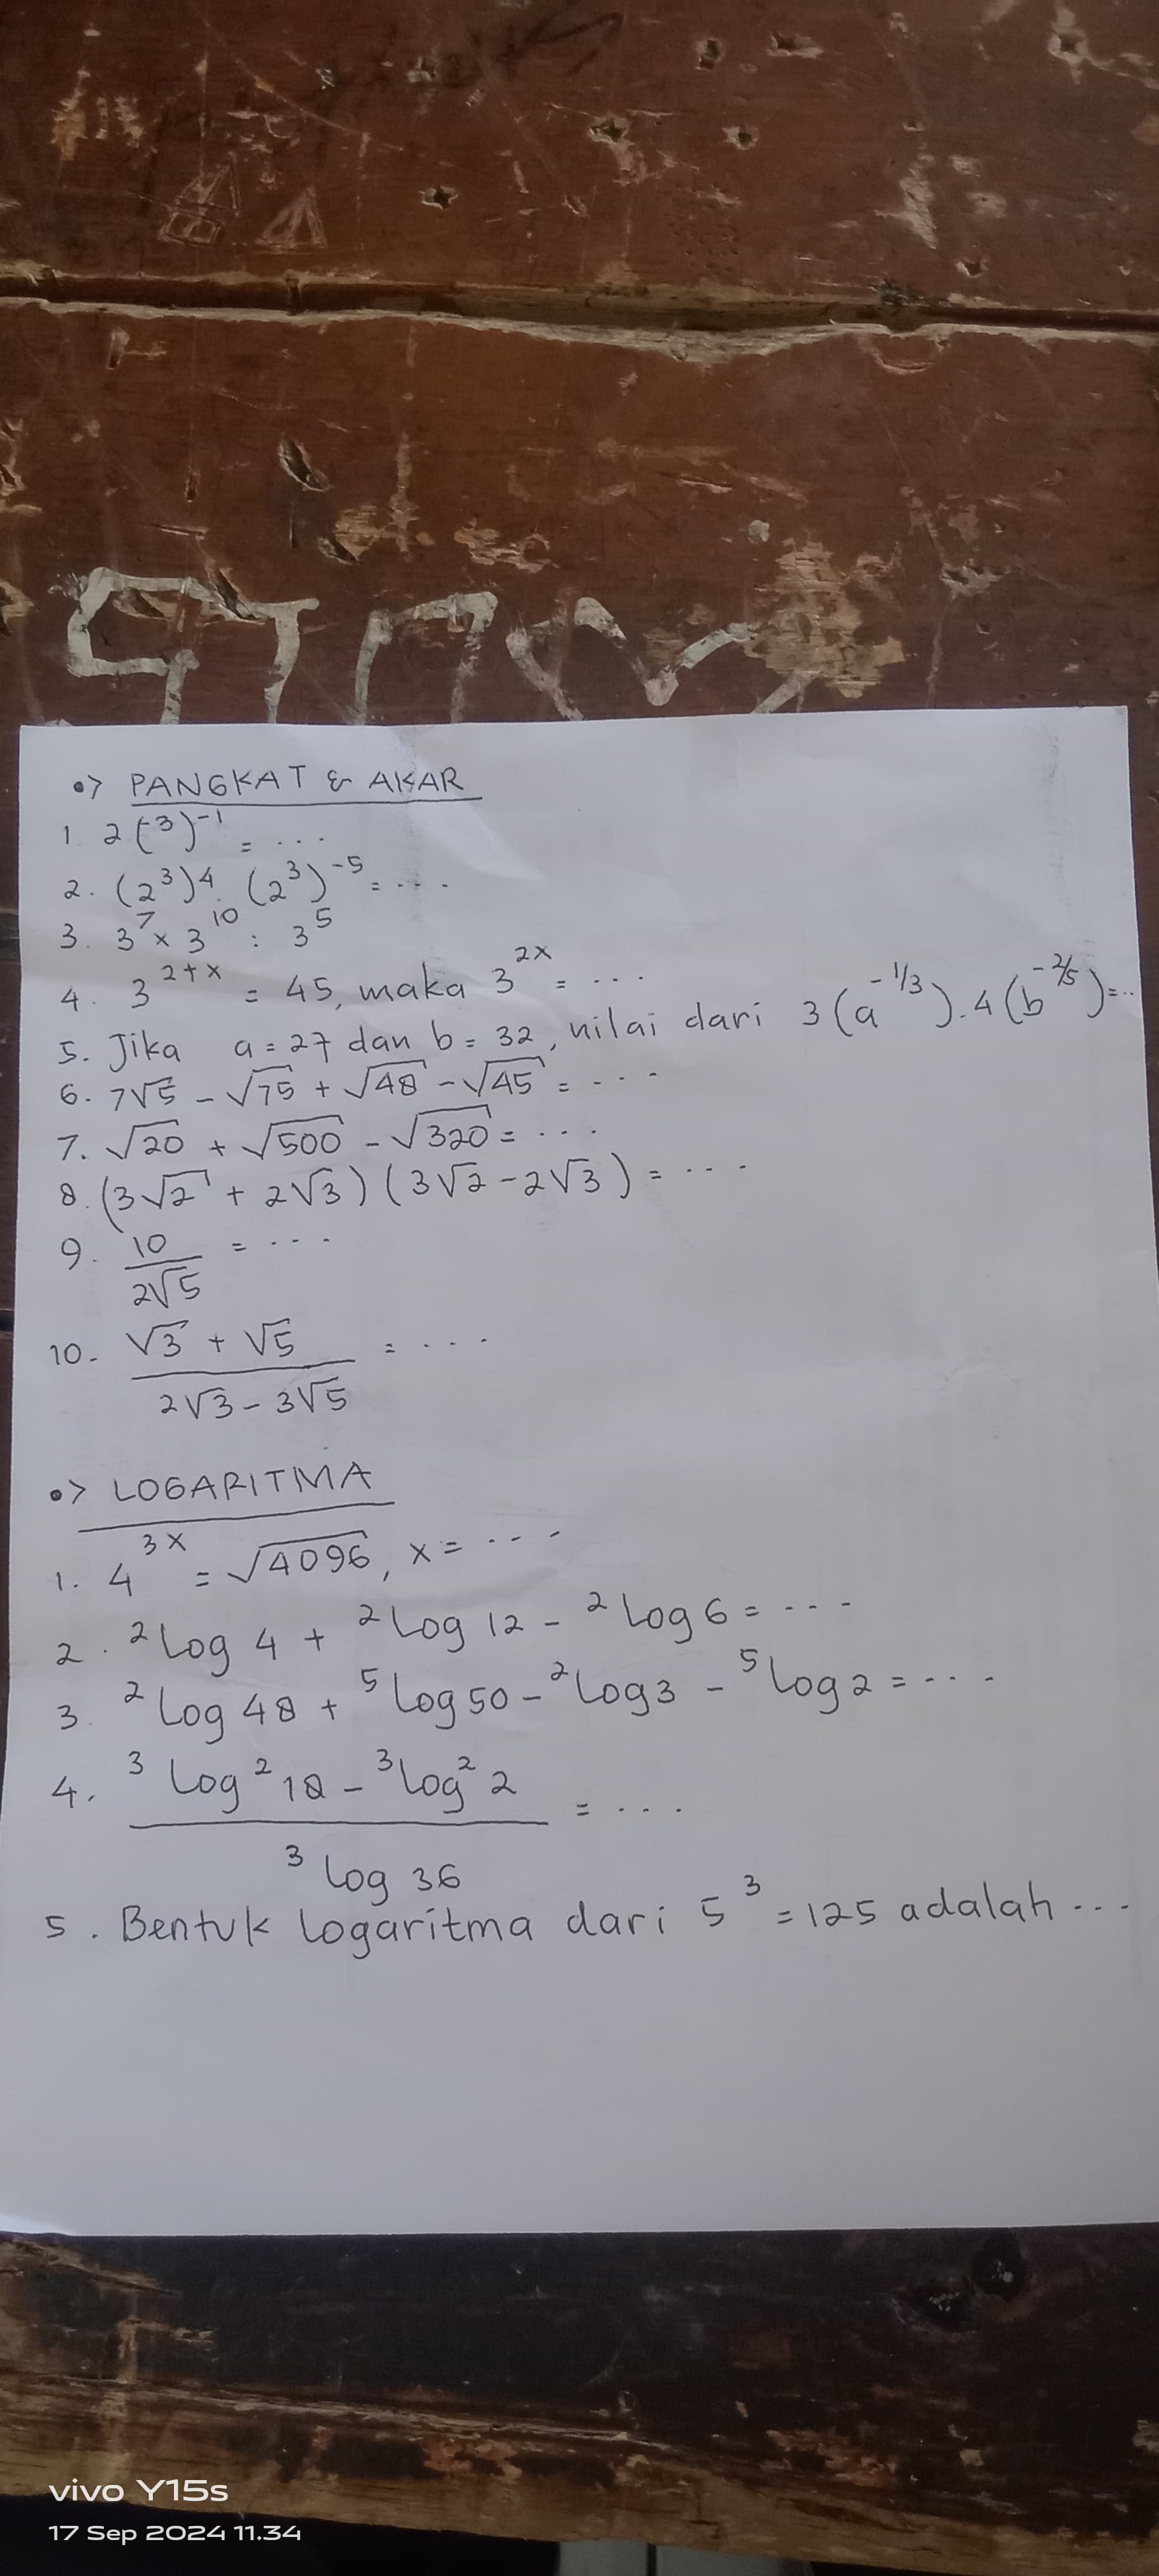 •> PANGKAT & AKAR
1. 2(-3)⁻¹ = ...
2. (2³)⁴. (2³)⁻⁵ = ....
3. 3⁷ x 3¹⁰ : 3⁵
4. 3²⁺ˣ = 45, maka 3²ˣ = ...
5. Jika a = 27 dan b = 32, nilai dari 3(a^-1/3). 4(b^-2/5) = ...
6. 7√5 - √75 + √48 - √45 = ....
7. √20 + √500 - √320 = ....
8. (3√2 + 2√3) (3√2 - 2√3) = ....
9. 10/2√5 = ....
10. √3 + √5 / 2√3 - 3√5 = ....
•> LOGARITMA
1. 4³ˣ = √4096, x = ....
2. ²Log 4 + ²Log 12 - ²Log 6 = ....
3. ²Log 48 + ⁵Log 50 - ²Log 3 - ⁵Log 2 = ....
4. ³Log² 18 - ³Log² 2 / ³Log 36 = ....
5. Bentuk logaritma dari 5³ = 125 adalah ...
vivo Y15s
17 Sep 2024 11.34